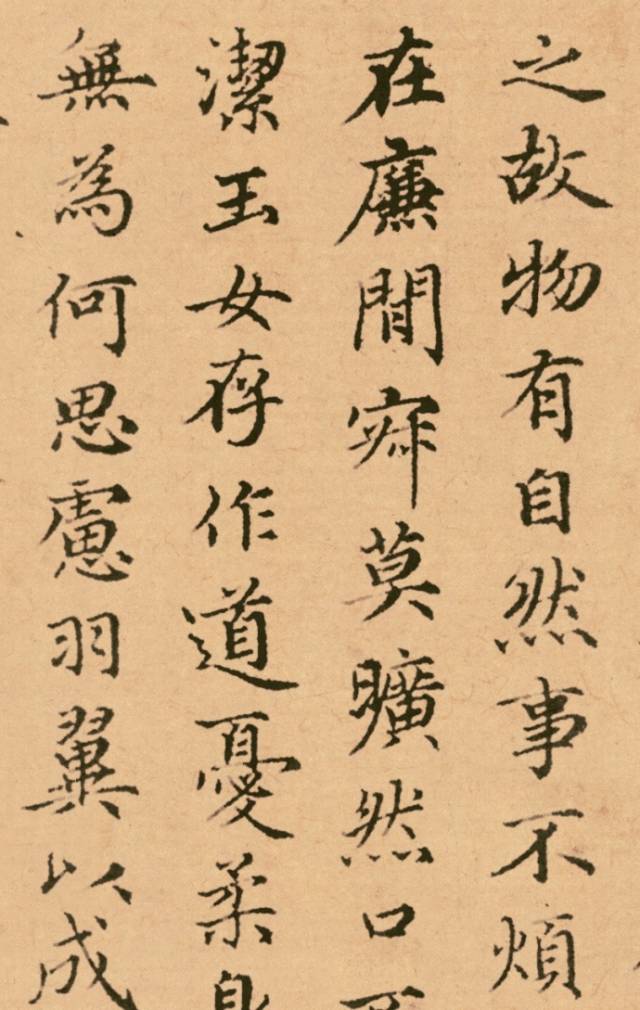 之故物有自然事不煩
在廉間寂莫曠然口不
潔玉女存作道憂柔身
無為何思慮羽翼以成